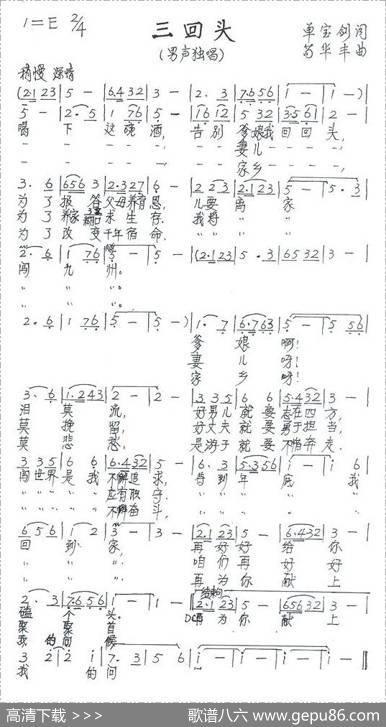 1=E 2/4
三回头
(男声独唱)
单宝剑 词
芶华丰 曲
稍慢 深情
(2·1 23 | 5 - | 6·4 32 | 3 - | 2· 3 | 7656 | 1 - | 1 -)
5 - | 2· 5 | 1 76 | 5 - | 16 12 | 5 32 | 35 61 | 2 -
喝 下 这碗 酒, 告别 爹娘我 回回 头,
妻儿
家乡
3· 6 | 656 3 | 2·3 27 | 6 - | 2 23 | 2·1 23 | 5 - | 5· 3
为 了 报 答 父母养育 恩, 儿要 离 家
为 了 养家 求 生 存, 我将 〃 〃
为 了 改 变 千年 宿 命, 〃 〃 〃
2· 6 | 1 76 | 5 - | 5 - | (2·1 23 | 5 · 3 | 65 32 | 3 -
闯 九 州。
〃 〃 〃
〃 〃 〃
2· 6 | 1 76 | 5 - | 5 -) | 1· 7 | 6·763 | 5 - | 5 56
爹 娘 啊!
妻 儿 呀!
家 乡 呀!
3· 6 | 1·2 43 | 2 - | 2 - | 3 3 5 | 6 6 | 5·4 32 | 3 -
泪 莫 流, 好男儿 就要 志在四 方,
莫 挽 留, 好丈夫 就要 勇于担 当,
莫 悲 愁, 是游子 就要 不怕奔 走,
3 3 5 | 6 6 | 6·4 32 | 5 - | 5 5 | 5·356 | i - | i 6
闯世界 是我 不懈追 求 待到年 底 我
〃 〃 〃 〃 应有职 守, 〃 〃 〃 〃 〃
〃 〃 〃 〃 不懈奋 斗, 〃 〃 〃 〃 〃
6 5 6 | 1 2 | 3 - | 3 - | 2·1 23 | 5 - | 6·4 32 | 3 -
回 到 家, 再好 好 给 你
〃 〃 〃 咱们 再 好 好
〃 〃 〃 再为 你 献 上
2· 3 | 7656 | 1 - | 1 - | 2·1 23 | 5 - | 656 32 | 3 -
结构
磕 个 头
聚 聚 首 D.C. 再为 你 献 上
我 的问 候
3 2 | 2 i | 7· 3 | 5 6 | i - | i - | i - | i - ‖
我 的问
高清下载 >>>
歌谱八六 www.gepu86.com